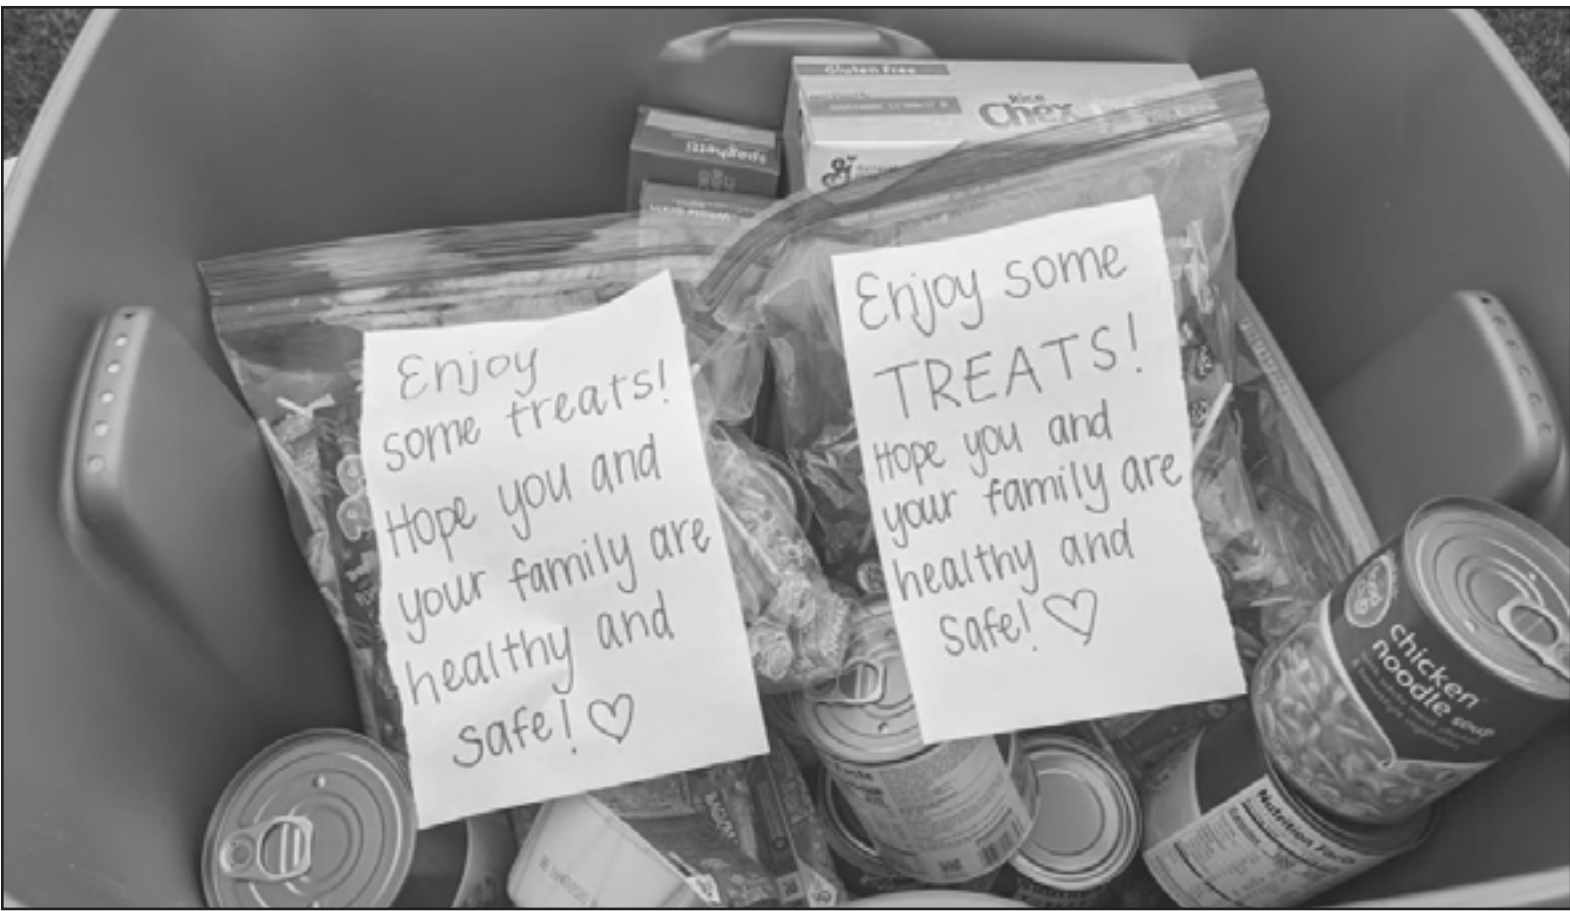 Gluten Free
Rice
Chex
spaghetti
Enjoy
some treats!
Hope you and
your family are
healthy and
safe! ♡
Enjoy some
TREATS!
Hope you and
your family are
healthy and
safe! ♡
chicken
noodle soup
Nutrition Facts